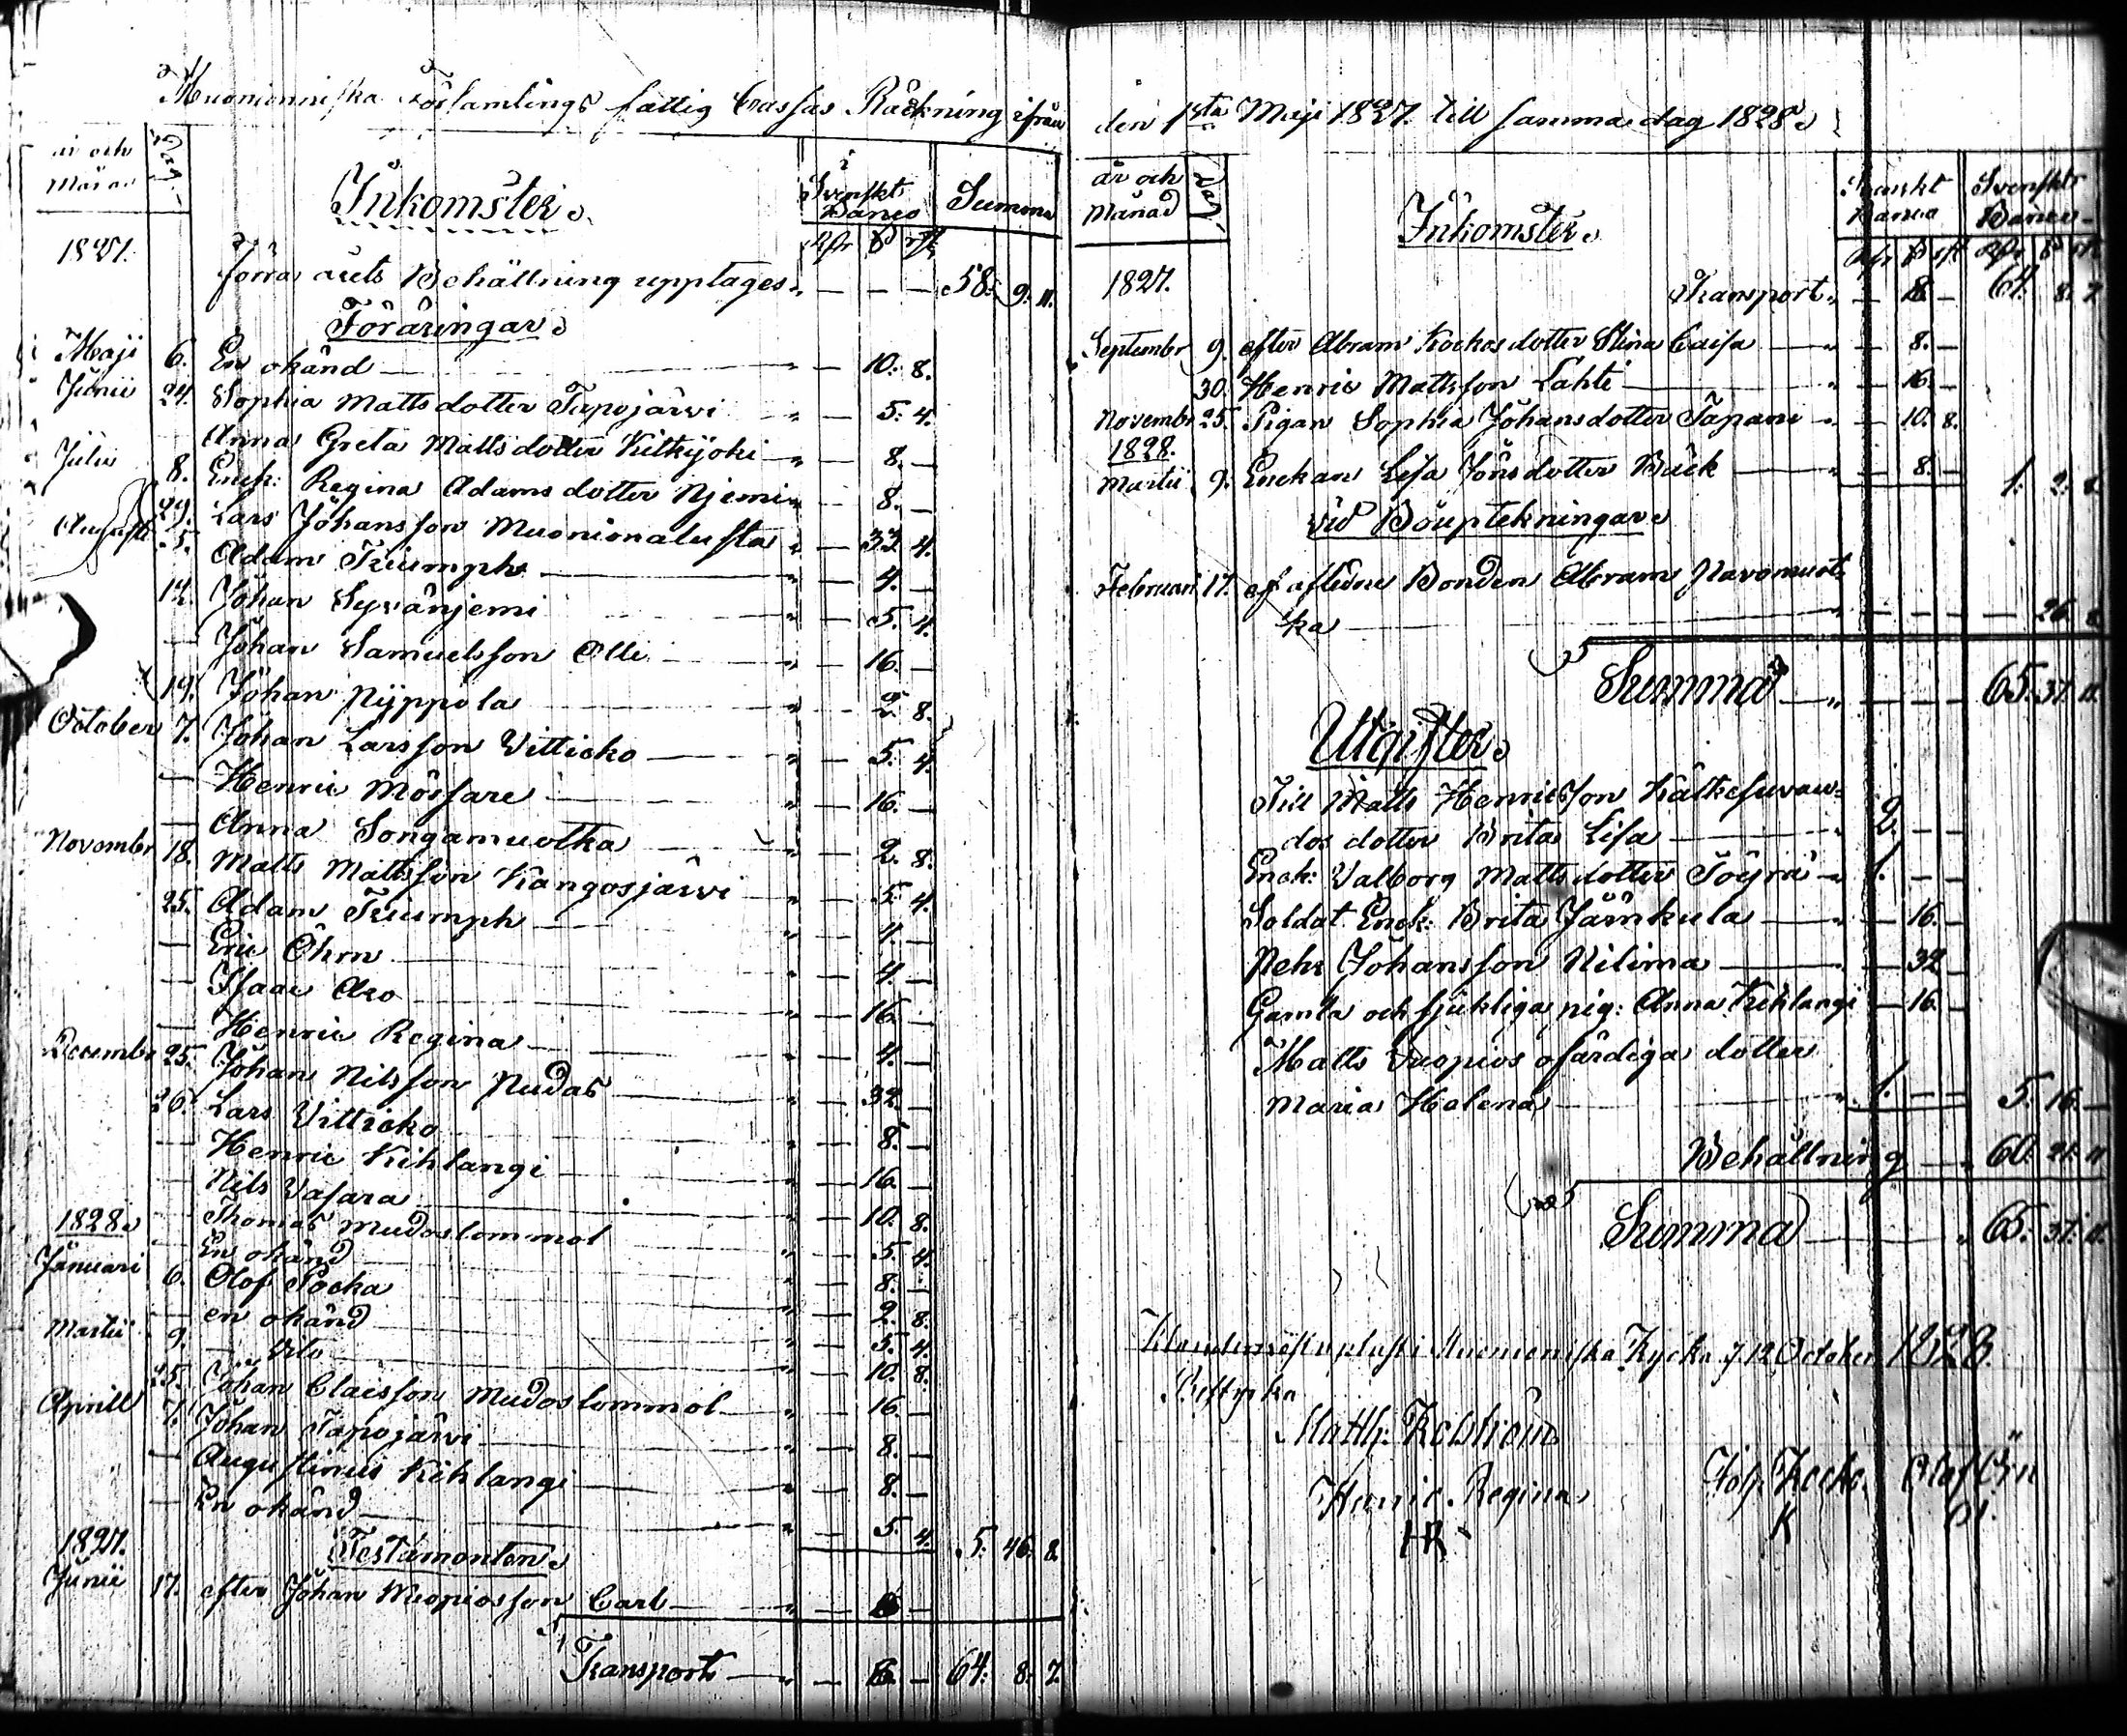 Muonionniska Församlings fattig Cassas Räckning ifrån
år och Månad Dag Inkomster i Svenskt Banco Summa
Rdr ß rst
1827. Förra årets Behållning upptages — — — 58: 9. 11.
Föräringar
Maji 6. En okänd — 10. 8.
Junii 24. Sophia Mattsdotter Tapojärvi — 5. 4.
Anna Greta Mattsdotter Kitkijoki — 8. —
Julii 8. Enck: Regina Adamsdotter Njemi — 8. —
29. Lars Johansson Muonionalusta — 33 4.
Augusti 5. Adam Triumph — 4. —
12. Johan Syvänjemi — 5. 4.
— Johan Samuelsson Olli — 16. —
19. Johan Nyppola — 2. 8.
October 7. Johan Larsson Vitticko — 5. 4.
— Henric Mössare — 16. —
— Anna Songamuotka — 2. 8.
Novembr 18. Matts Mattsson Kangosjärvi — 5. 4.
25. Adam Triumph — 4. —
— Eric Öhrn — 4. —
— Isaac Aro — 16. —
— Henric Regina — 4. —
Decembr 25. Johan Nilsson Rudas — 32. —
26. Lars Vitticko — 8. —
— Henric Kihlangi — 16. —
— Nils Vasara — 10. 8.
— Thomas Mudoslommol — 5. 4.
1828.
— En okänd — 8. —
Januari 6. Olof Tocka — 2. 8.
— en okänd — 5. 4.
Martii 9. — Dito — 10. 8.
25. Johan Claesson Mudoslommol — 16. —
Aprill 7. Johan Tapojärvi — 8. —
— Augustinus Kihlangi — 8. —
— En okänd — 5. 4. 5. 46. 8.
1827. Testamenten
Junii 17. efter Johan Wuopiosson Carl —
Transport — 64: 8. 7.
den 1sta Maji 1827. till samma dag 1828.
år och Månad Dag Inkomster Svenskt Banco Svenskt Banco
Rdr ß rst Rdr ß rst
1827. Transport — 64. 8. 7.
Septembr 9. efter Abram Kockos dotter Stina Caisa — 8. —
30. Henric Mattsson Lahti — 16. —
Novembr 25. Pigan Sophia Johansdotter Tapani — 10. 8.
1828.
Martii 9. Enckan Lisa Jönsdotter Bäck — 8. — 1. 2. 8.
vid Bouptekningar
Februari 17. ef. aflidne Bonden Abram Navamuot-
ka — 26. 8.
Summa — 65. 37. 11.
Utgifter
Till Matts Henricsson Kätkesuvan-
dos dotter Brita Lisa — 2. — —
Enck: Valborg Mattsdotter Töyrä — 1. — —
Soldat Enck: Brita Järnkula — 16. —
Pehr Johansson Nilima — 32 —
Gamla och sjukliga pig: Anna Kihlangi — 16. —
Matts Vuopios ofärdiga dotter
Maria Helena — 1. — — 5. 16. —
Behållning — 60. 21. 11
Summa — 65. 37. 11.
uplast i Muonioniska Kyrka d 12 October 1828.
Bestyrka
Matth: Kolström
Henric Regina Joh. Kocko. Olof Örn
HR K